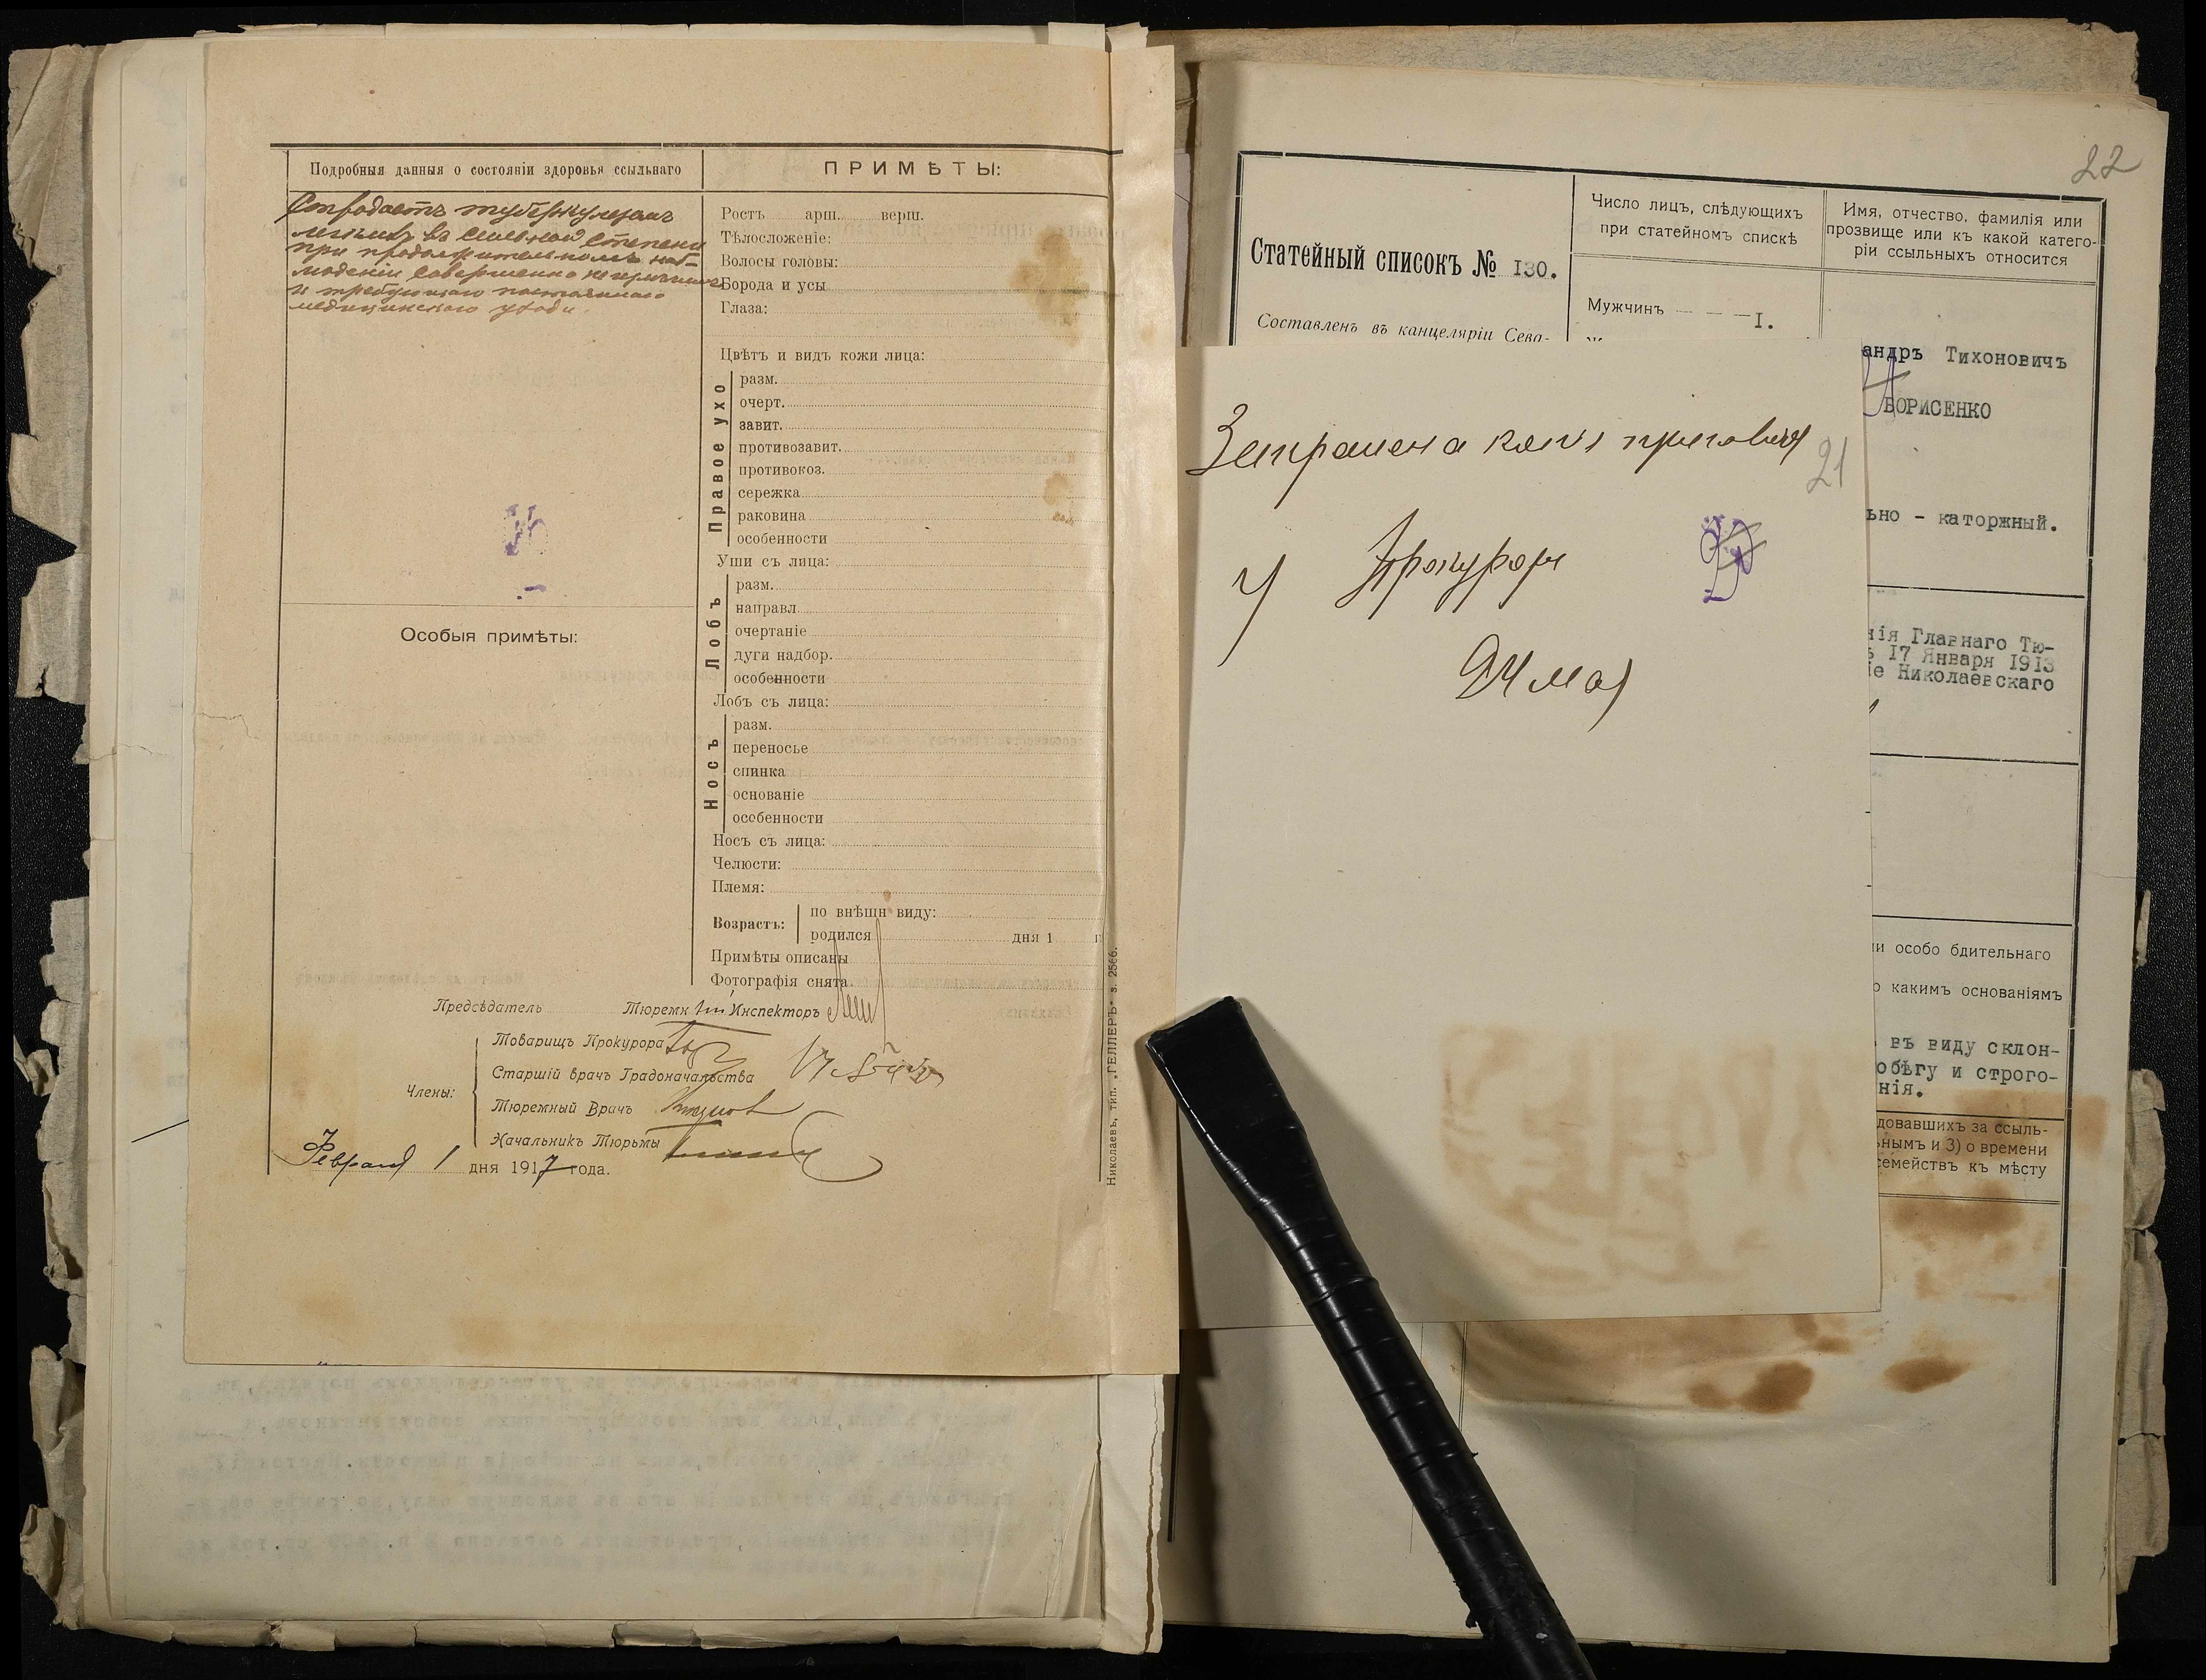 Подробныя данныя о состояніи здоровья ссыльнаго
Страдаетъ туберкулезомъ
легкихъ въ сильной степени
при продолжительномъ наб-
людении совершенно неизлечимъ
и требующаго постояннаго
медицинскаго ухода.
Особыя примѣты:
ПРИМѢТЫ:
Ростъ арш. верш.
Тѣлосложеніе:
Волосы головы:
Борода и усы
Глаза:
Цвѣтъ и видъ кожи лица:
Правое ухо
разм.
очерт.
завит.
противозавит.
противокоз.
сережка
раковина
особенности
Уши съ лица:
Лобъ
разм.
направл.
очертаніе
дуги надбор.
особенности
Лобъ съ лица:
Носъ
разм.
переносье
спинка
основаніе
особенности
Носъ съ лица:
Челюсти:
Племя:
Возрастъ:
по внѣшн виду:
родился дня 1 г
Примѣты описаны
Фотографія снята
Предсѣдатель Тюремн Инспекторъ
Члены:
Товарищъ Прокурора
Старшій врачъ Градоначальства
Тюремный Врачъ
Начальникъ Тюрьмы
Февраля 1 дня 1917 года.
Николаевъ, тип. „ГЕЛЛЕРЪ" з. 2566.
22
Статейный списокъ № 130.
Составленъ въ канцеляріи Сева-
Число лицъ, слѣдующихъ
при статейномъ спискѣ
Мужчинъ — — — I.
Имя, отчество, фамилія или
прозвище или къ какой катего-
ріи ссыльныхъ относится
андръ Тихоновичъ
БОРИСЕНКО
ьно - каторжный.
нія Главнаго Тю-
ъ 17 Января 1913
іе Николаевскаго
и особо бдительнаго
о какимъ основаніямъ
въ виду склон-
обѣгу и строго-
нія.
довавшихъ за ссыль-
ьнымъ и 3) о времени
семействъ къ мѣсту
Запрошена копія приговора
21
У Прокурора
24 мая